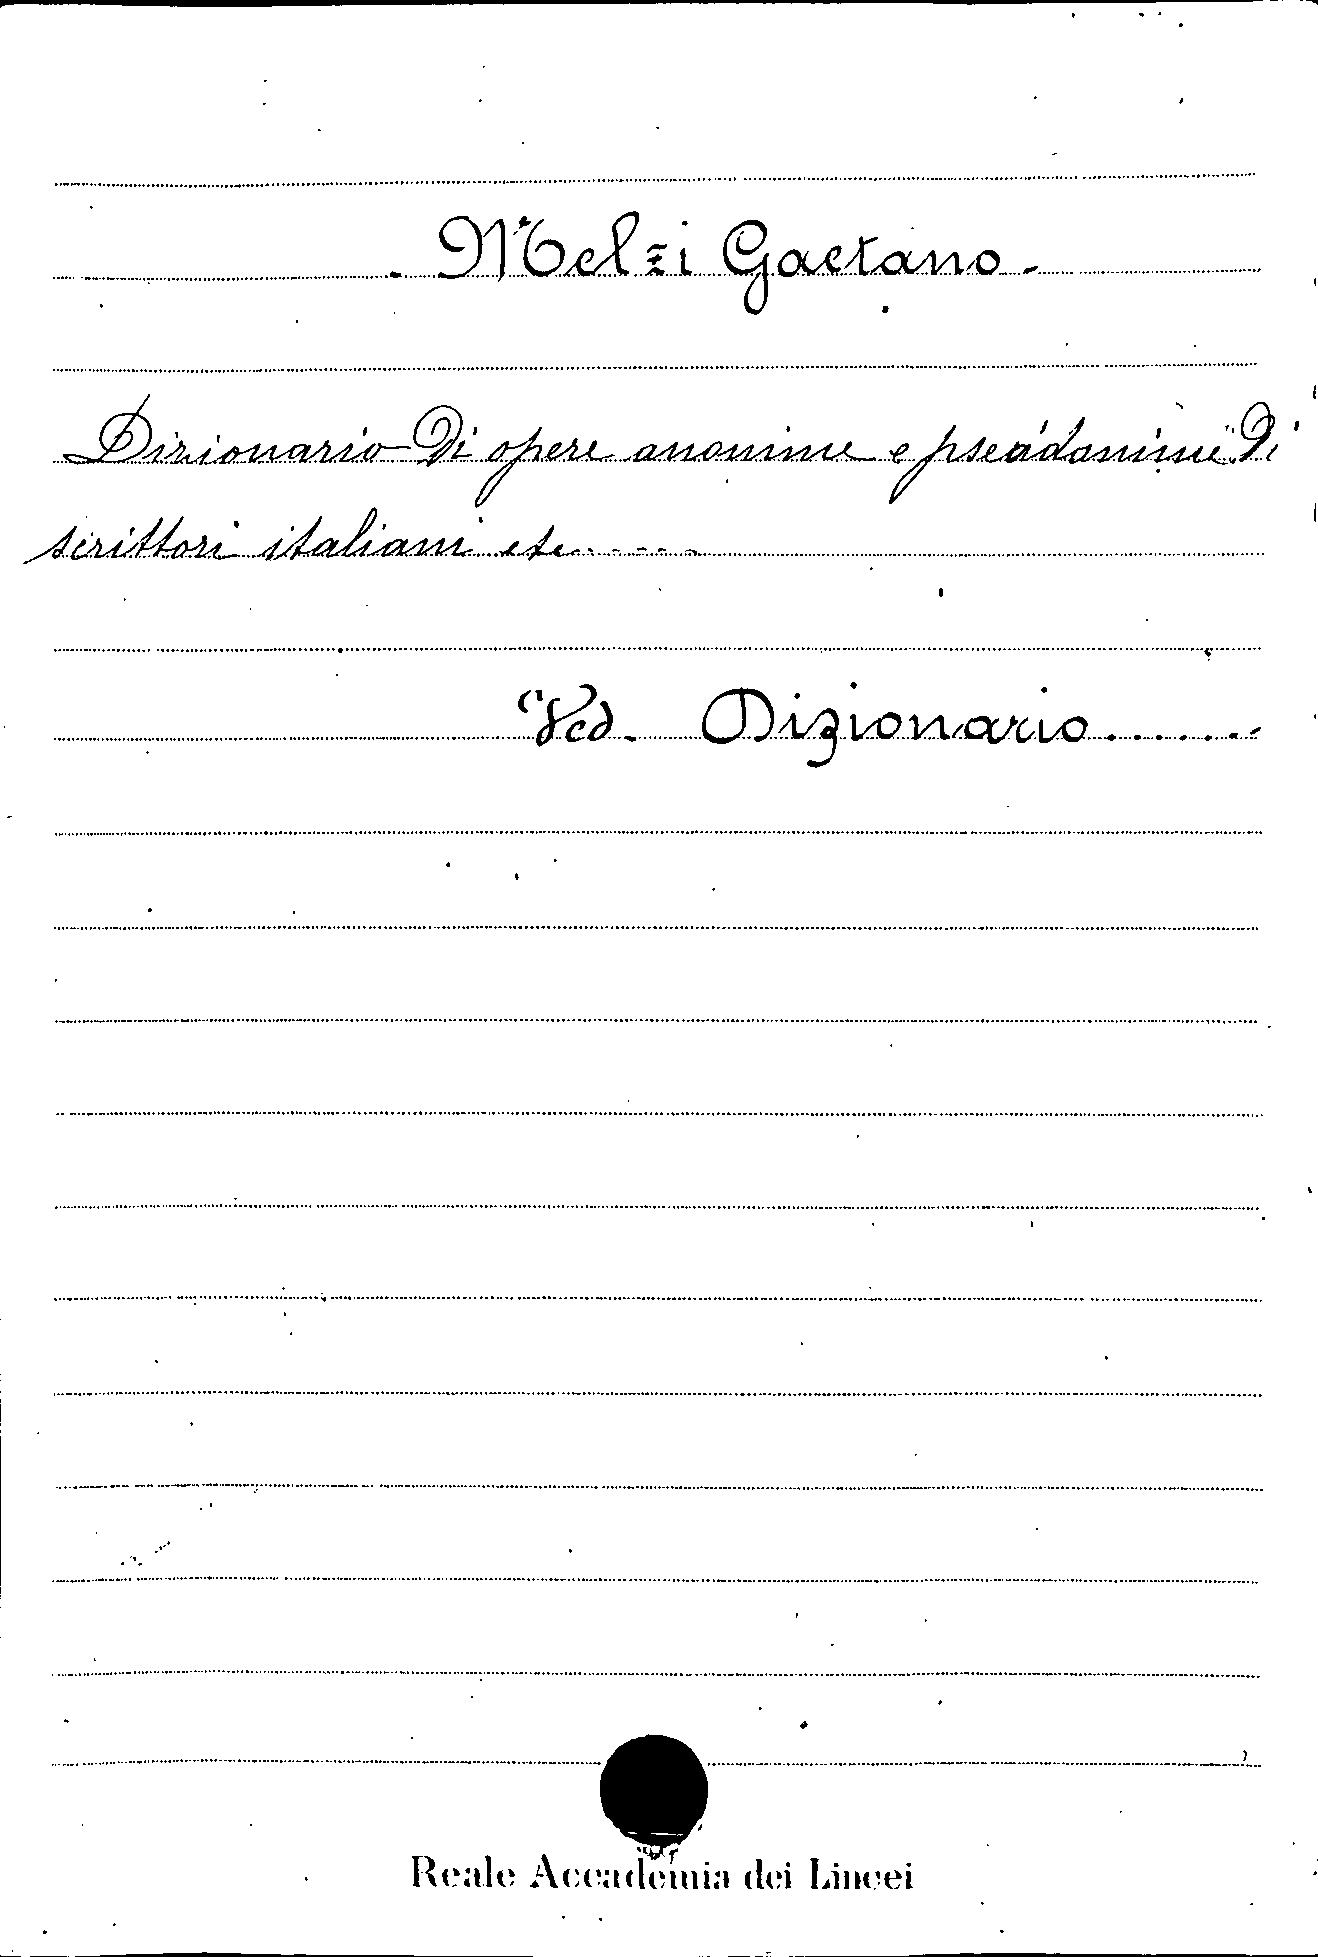 Melzi Gaetano -
Dizionario di opere anonime e pseudonime di
scrittori italiani etc. - - - -
Ved. Dizionario . . . . . . .
Reale Accademia dei Lincei